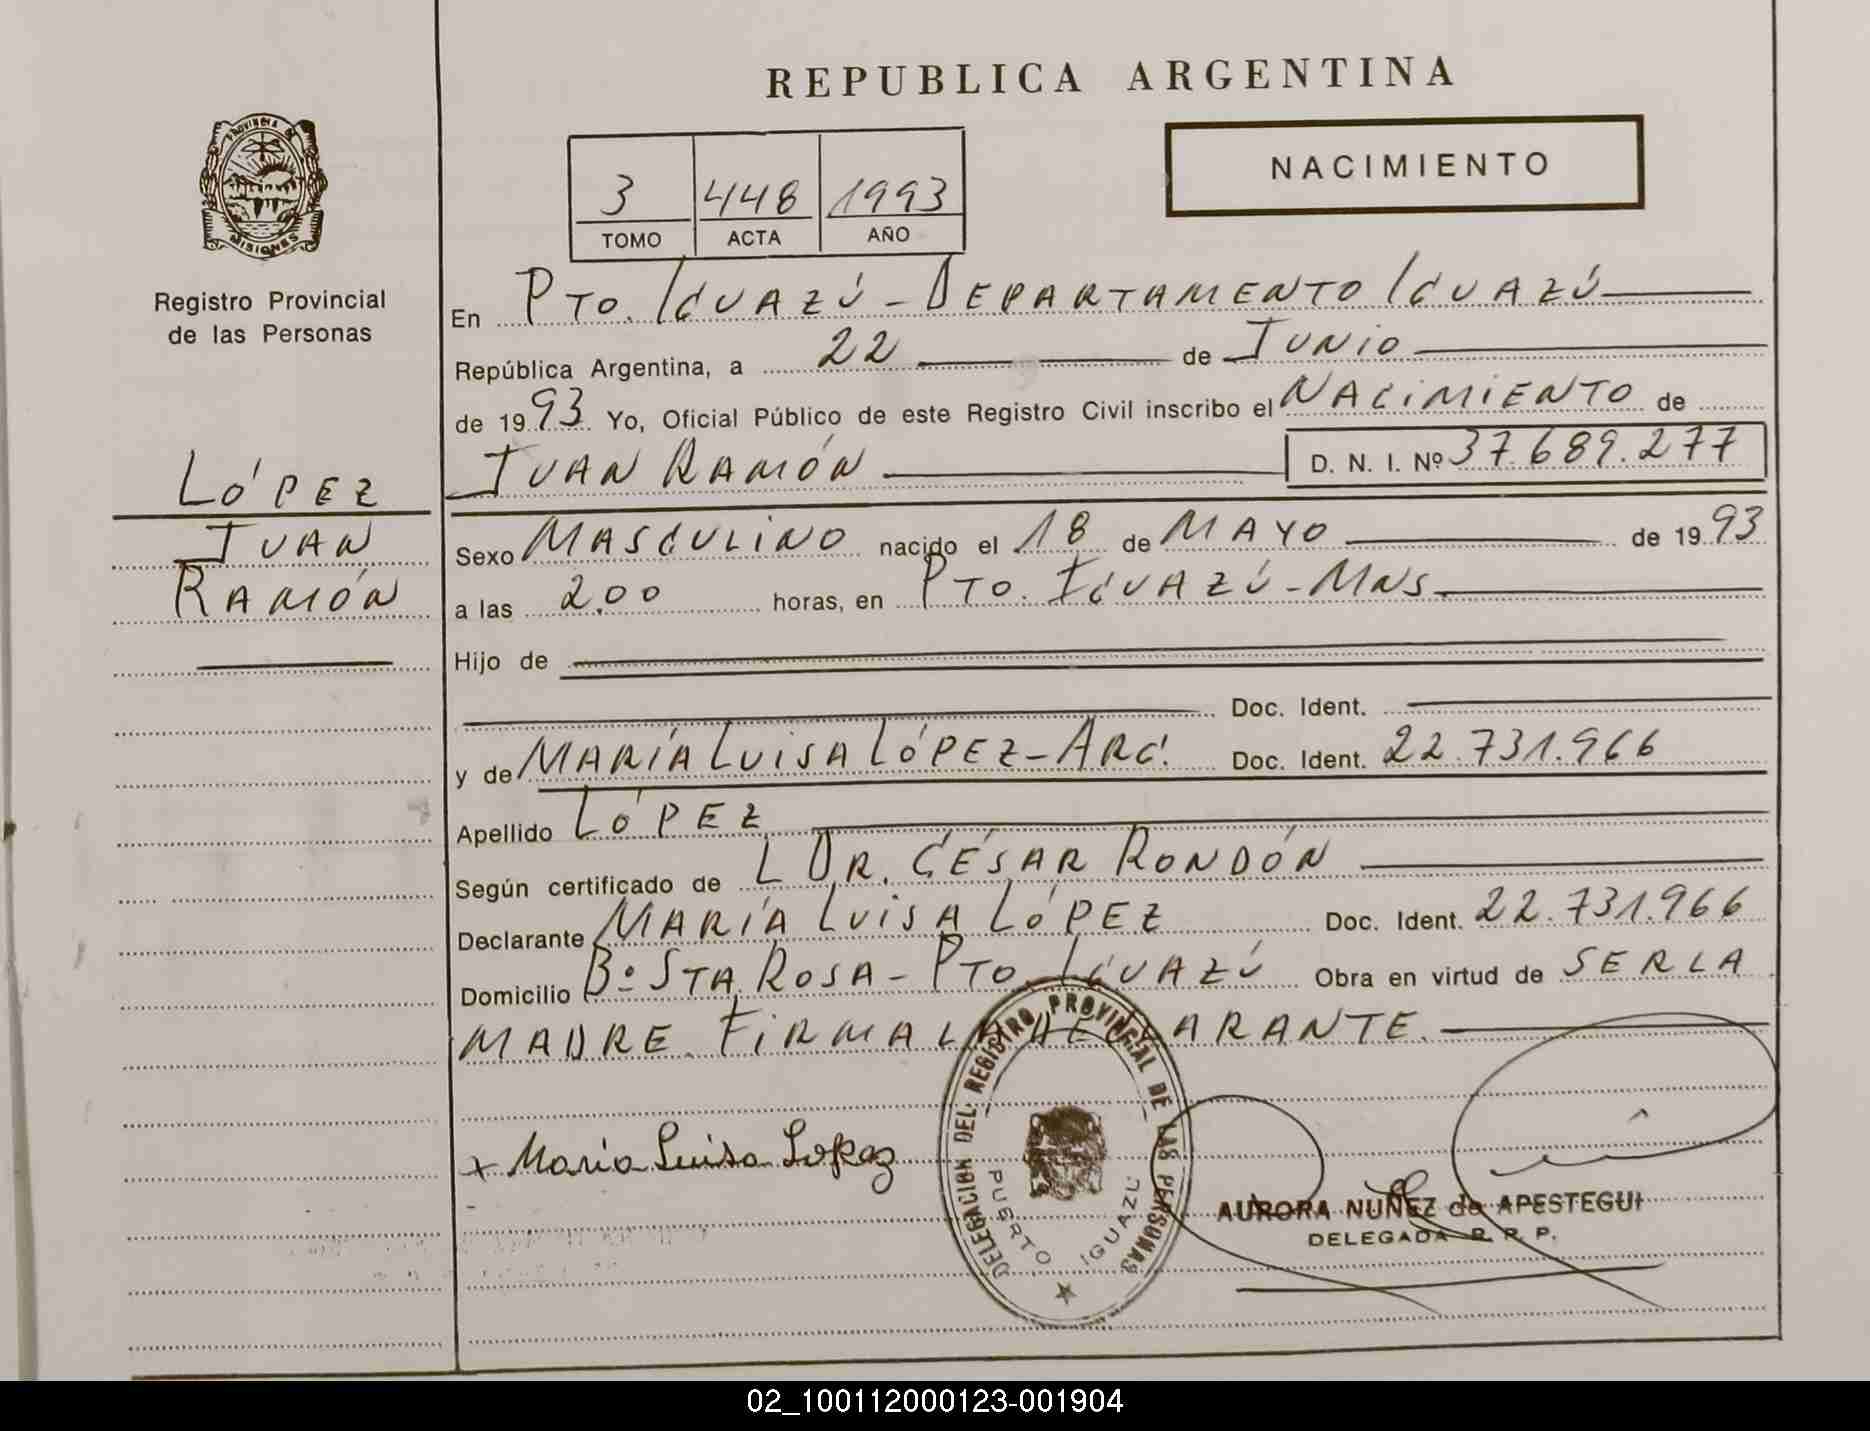 REPUBLICA ARGENTINA
PROVINCIA DE
MISIONES
Registro Provincial
de las Personas
3 448 1993
TOMO ACTA AÑO
NACIMIENTO
En PTO. IGUAZÚ - DEPARTAMENTO IGUAZÚ
República Argentina, a 22 de JUNIO
de 1993 Yo, Oficial Público de este Registro Civil inscribo el NACIMIENTO de
JUAN RAMÓN D. N. I. Nº 37.689.277
LÓPEZ
JUAN
RAMÓN
Sexo MASCULINO nacido el 18 de MAYO de 1993
a las 2.00 horas, en PTO. IGUAZÚ - MNS.
Hijo de
Doc. Ident.
y de MARÍA LUISA LÓPEZ - ARG. Doc. Ident. 22.731.966
Apellido LÓPEZ
Según certificado de L DR. CÉSAR RONDÓN
Declarante MARÍA LUISA LÓPEZ Doc. Ident. 22.731.966
Domicilio Bº STA ROSA - PTO. IGUAZÚ Obra en virtud de SER LA
MADRE. FIRMA LA DECLARANTE.
x Maria Luisa Lopez
DELEGACION DEL REGISTRO PROVINCIAL DE LAS PERSONAS
PUERTO IGUAZU
AURORA NUÑEZ de APESTEGUI
DELEGADA R. P. P.
02_100112000123-001904